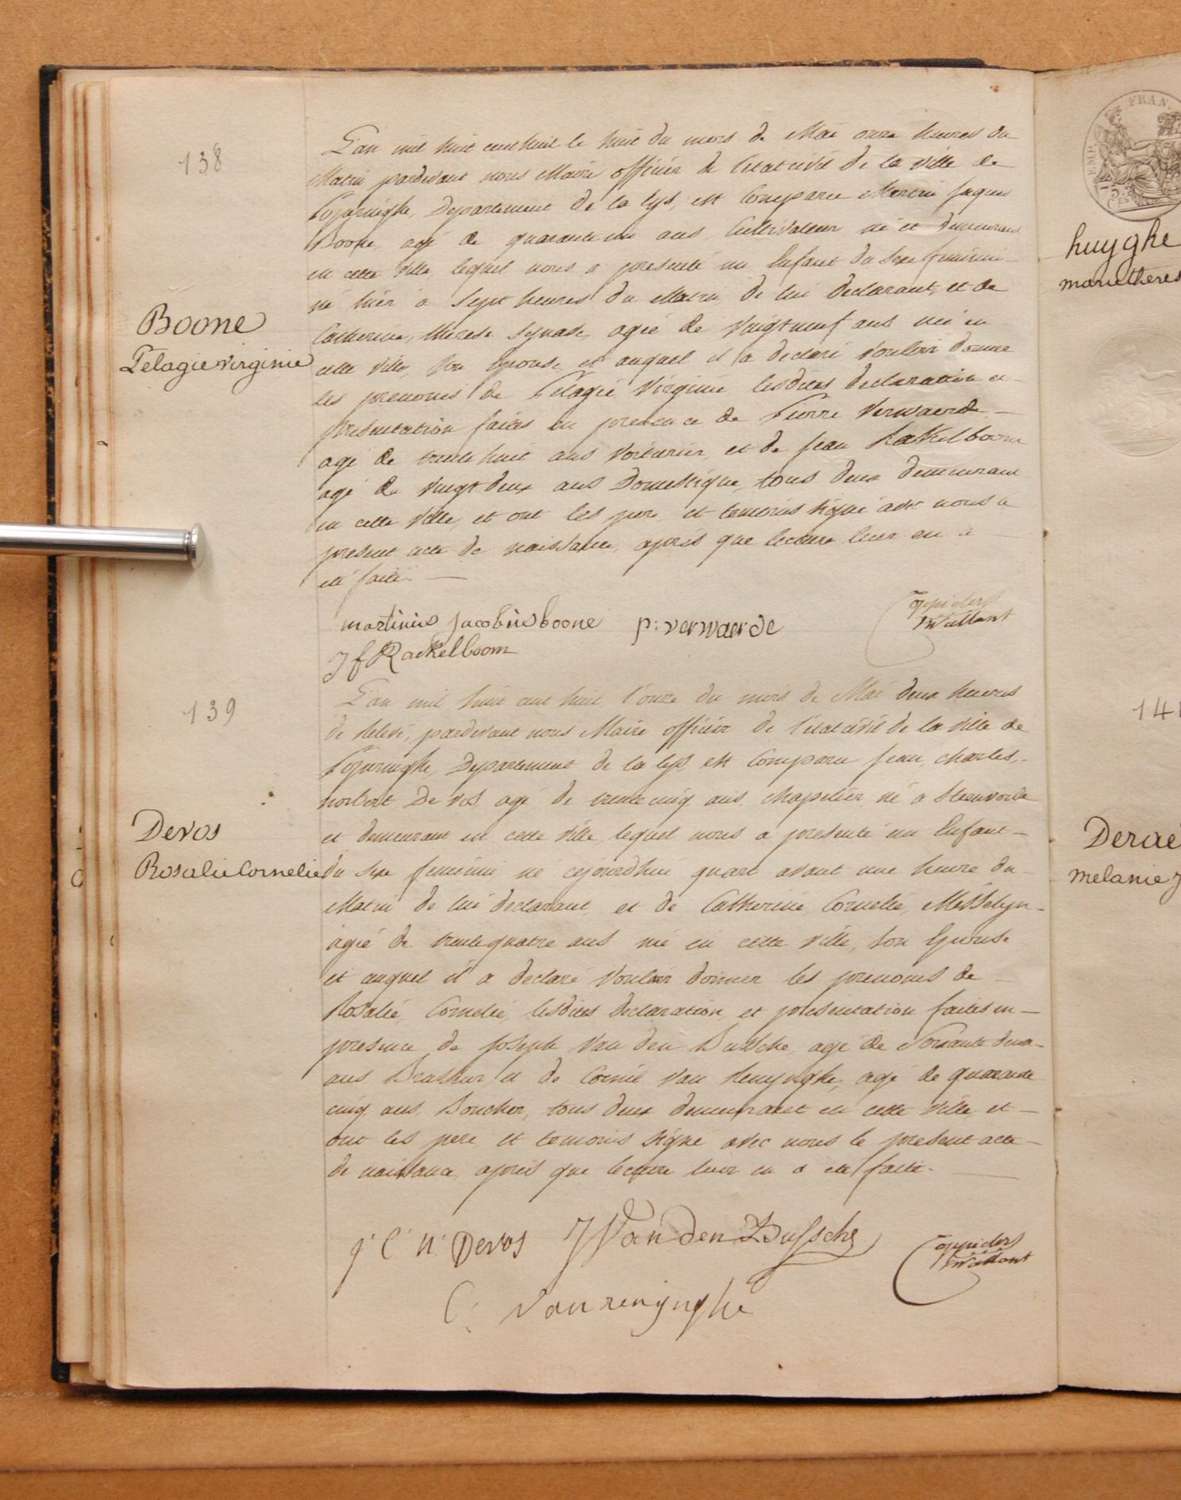 138
Boone
Pelagie virginie
L'an mil huit cent huit le huit du mois de Mai onze heures du
Matin pardevant nous Maire officier de l'état civil de la ville de
Poperinghe, Departement de la Lys, est Comparu Martin Jaques
Boone agé de quarante un ans Cultivateur né et demeurant
en cette ville lequel nous a presenté un Enfant du Sexe feminin
né hier a Sept heures du Matin de lui declarant, et de
Catherine Therese agée de Vingtneuf ans née en
cette Ville, son Epouse et auquel il a declaré Vouloir donner
les prenoms de Pelagie Virginie lesdites declaration et
presentation faites en presence de Pierre Verwaerde
agé de trente huit ans Voiturier et de Jean Rackelboom
agé de Vingt deux ans Domestique, tous deux demeurant
en cette Ville et ont les pere et temoins signé avec nous le
present acte de naissance, après que lecture leur en a
été faite
martinus jacobus boone p: verwaerde
J f Rackelboom
139
Devos
Rosalie Cornelie
L'an mil huit cent huit l'onze du mois de Mai deux heures
de relevé, pardevant nous Maire officier de l'état civil de la Ville de
Poperinghe, Departement de la Lys, est Comparu Jean, charles,
norbert De vos agé de trente cinq ans, chapelier né a Steenvorde
et demeurant en cette Ville lequel nous a presenté un Enfant
du Sexe feminin né cejourdhui quart avant une heure du
Matin de lui declarant et de Catherine Cornelie Messelyn
agée de trentequatre ans née en cette Ville, son Epouse
et auquel il a declaré Vouloir donner les prenoms de
Rosalie Cornelie lesdites declaration et presentation faites en
presence de Joseph Van den Bussche agé de Soixante deux
ans Brasseur et de Corneil Van Renynghe, agé de quarante
cinq ans Boucher, tous deux demeurant en cette Ville et
ont les pere et temoins signé avec nous le present acte
de naissance après que lecture leur en a été faite.
j: C: N: Devos J Van Den Bussche
C: vanrenynghe
huyghe
Derae
melanie